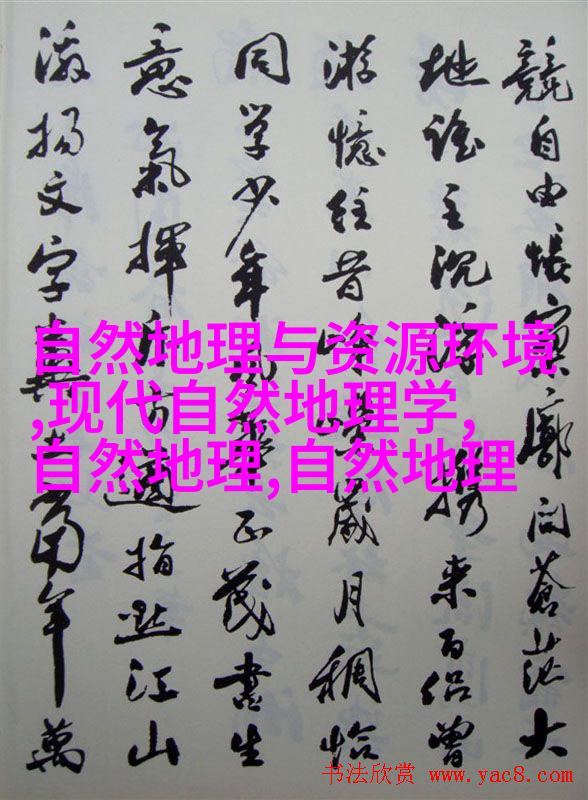 競自由悵寥廓问蒼茫大
地谁主沉浮携来百侣曾
游憶往昔峥嵘歲月稠恰
同学少年风華正茂書生
意氣揮斥方遒指點江山
激揚文字糞土當年萬
自然地理与资源环境
,现代自然地理学,
自然地理,自然地理
书法欣赏 www.yac8.com